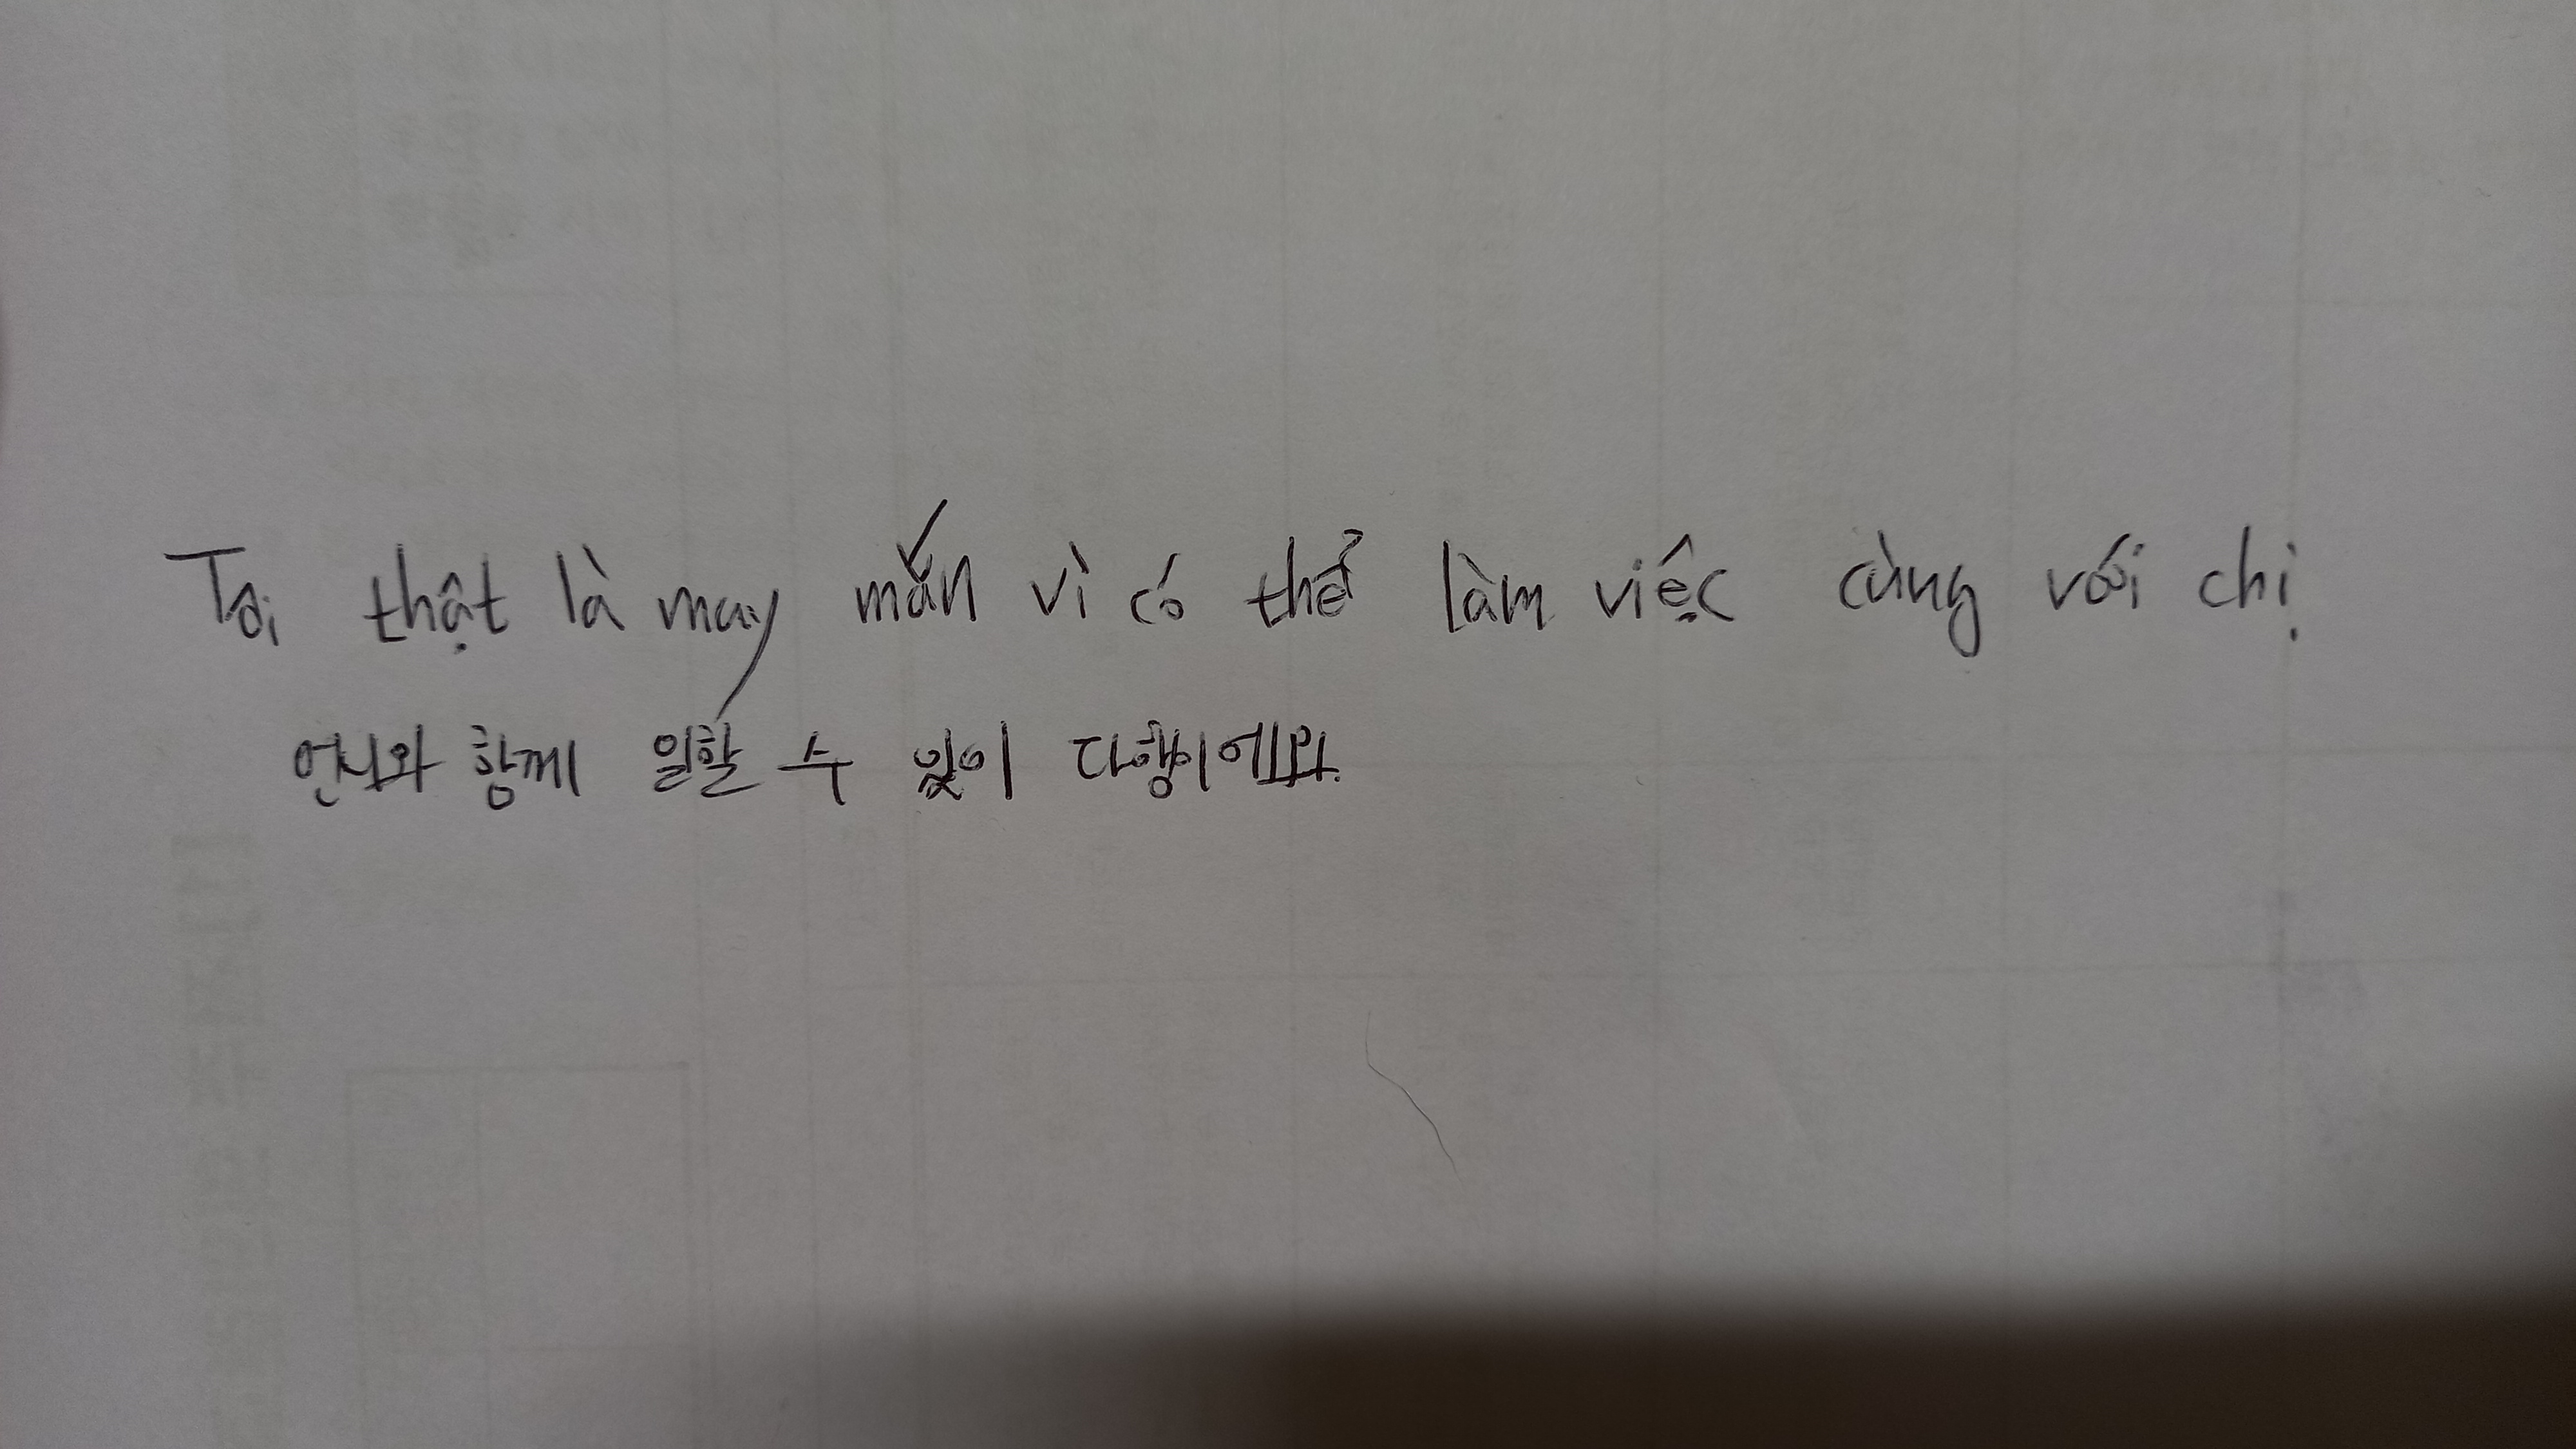 Tôi thật là may mắn vì có thể làm việc cùng với chị
언니와 함께 일할 수 있이 다행이에요.